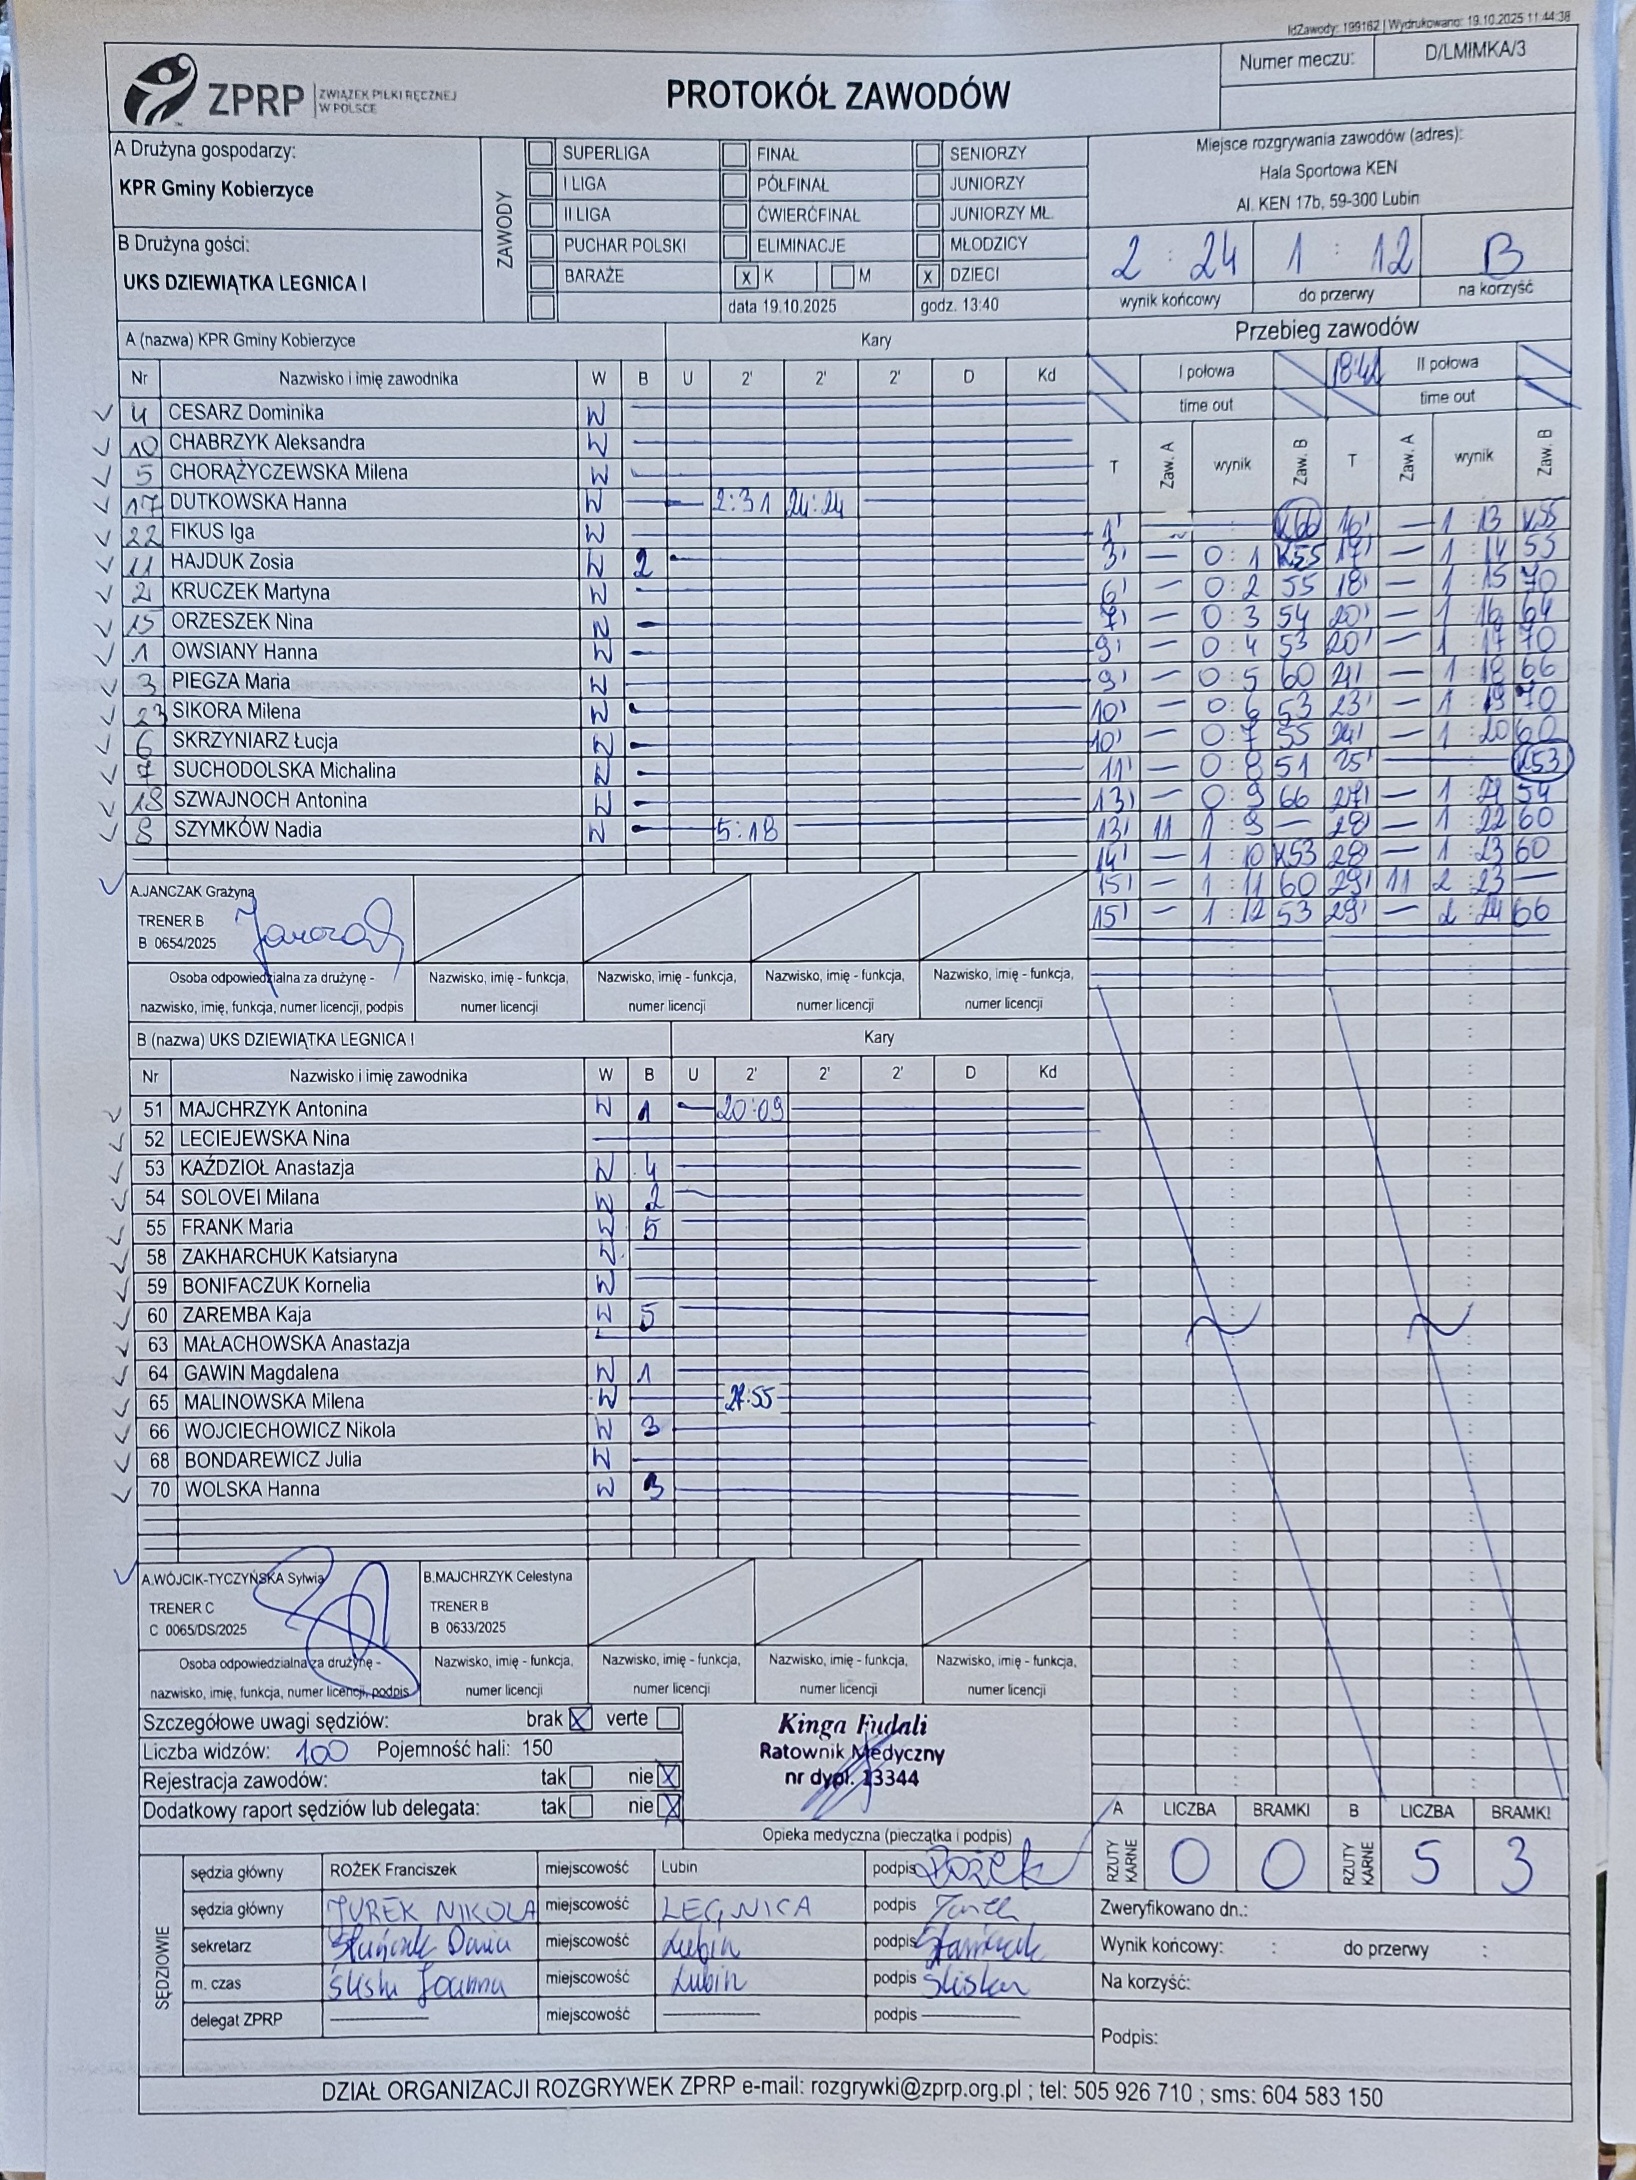 IdZawody: 199162 | Wydrukowano: 19.10.2025 11:44:38
ZPRP ZWIĄZEK PIŁKI RĘCZNEJ W POLSCE
PROTOKÓŁ ZAWODÓW
Numer meczu: D/LMIMKA/3
A Drużyna gospodarzy:
KPR Gminy Kobierzyce
B Drużyna gości:
UKS DZIEWIĄTKA LEGNICA I
ZAWODY
SUPERLIGA FINAŁ SENIORZY
I LIGA PÓŁFINAŁ JUNIORZY
II LIGA ĆWIERĆFINAŁ JUNIORZY MŁ.
PUCHAR POLSKI ELIMINACJE MŁODZICY
BARAŻE x K M x DZIECI
data 19.10.2025 godz. 13:40
Miejsce rozgrywania zawodów (adres):
Hala Sportowa KEN
Al. KEN 17b, 59-300 Lubin
2 : 24 1 : 12 B
wynik końcowy do przerwy na korzyść
A (nazwa) KPR Gminy Kobierzyce Kary
Nr Nazwisko i imię zawodnika W B U 2' 2' 2' D Kd
4 CESARZ Dominika W
10 CHABRZYK Aleksandra W
5 CHORĄŻYCZEWSKA Milena W
17 DUTKOWSKA Hanna W 2:31 24:24
22 FIKUS Iga W
11 HAJDUK Zosia W 2
2 KRUCZEK Martyna W
15 ORZESZEK Nina W
1 OWSIANY Hanna W
3 PIEGZA Maria W
23 SIKORA Milena W
6 SKRZYNIARZ Łucja W
7 SUCHODOLSKA Michalina W
18 SZWAJNOCH Antonina W
8 SZYMKÓW Nadia W 5:18
A.JANCZAK Grażyna
TRENER B
B 0654/2025
Osoba odpowiedzialna za drużynę -
nazwisko, imię, funkcja, numer licencji, podpis
Nazwisko, imię - funkcja,
numer licencji
Nazwisko, imię - funkcja,
numer licencji
Nazwisko, imię - funkcja,
numer licencji
Nazwisko, imię - funkcja,
numer licencji
Przebieg zawodów
I połowa 18:41 II połowa
time out time out
T Zaw. A wynik Zaw. B T Zaw. A wynik Zaw. B
1' : K66 16' — 1 : 13 K55
3' — 0 : 1 K55 17' — 1 : 14 55
6' — 0 : 2 55 18' — 1 : 15 70
7' — 0 : 3 54 20' — 1 : 16 64
9' — 0 : 4 53 20' — 1 : 17 70
9' — 0 : 5 60 21' — 1 : 18 66
10' — 0 : 6 53 23' — 1 : 19 70
10' 0 : 7 55 24' — 1 : 20 60
11' — 0 : 8 51 25' — K53
13' — 0 : 9 66 27' — 1 : 21 54
13' 11 1 : 9 — 28' — 1 : 22 60
14' — 1 : 10 K53 28' — 1 : 23 60
15' — 1 : 11 60 29' 11 2 : 23 —
15' — 1 : 12 53 29' — 2 : 24 66
B (nazwa) UKS DZIEWIĄTKA LEGNICA I Kary
Nr Nazwisko i imię zawodnika W B U 2' 2' 2' D Kd
51 MAJCHRZYK Antonina W 1 20:09
52 LECIEJEWSKA Nina
53 KAŹDZIOŁ Anastazja W 4
54 SOLOVEI Milana W 2
55 FRANK Maria W 5
58 ZAKHARCHUK Katsiaryna W
59 BONIFACZUK Kornelia W
60 ZAREMBA Kaja W 5
63 MAŁACHOWSKA Anastazja
64 GAWIN Magdalena W 1
65 MALINOWSKA Milena W
66 WOJCIECHOWICZ Nikola W 3
68 BONDAREWICZ Julia W
70 WOLSKA Hanna W 3
A.WÓJCIK-TYCZYŃSKA Sylwia
TRENER C
C 0065/DS/2025
B.MAJCHRZYK Celestyna
TRENER B
B 0633/2025
Osoba odpowiedzialna za drużynę -
nazwisko, imię, funkcja, numer licencji, podpis
Nazwisko, imię - funkcja,
numer licencji
Nazwisko, imię - funkcja,
numer licencji
Nazwisko, imię - funkcja,
numer licencji
Nazwisko, imię - funkcja,
numer licencji
Szczegółowe uwagi sędziów: brak X verte
Liczba widzów: 100 Pojemność hali: 150
Rejestracja zawodów: tak nie X
Dodatkowy raport sędziów lub delegata: tak nie X
Kinga Fudali
Ratownik Medyczny
nr dypl. 13344
Opieka medyczna (pieczątka i podpis)
A LICZBA BRAMKI B LICZBA BRAMKI
RZUTY KARNE 0 0 RZUTY KARNE 5 3
SĘDZIOWIE
sędzia główny ROŻEK Franciszek miejscowość Lubin podpis Rożek
sędzia główny JUREK NIKOLA miejscowość LEGNICA podpis Jurek
sekretarz miejscowość Lubin podpis
m. czas Śliska Joanna miejscowość Lubin podpis Śliska
delegat ZPRP miejscowość podpis
Zweryfikowano dn.:
Wynik końcowy: : do przerwy :
Na korzyść:
Podpis:
DZIAŁ ORGANIZACJI ROZGRYWEK ZPRP e-mail: rozgrywki@zprp.org.pl ; tel: 505 926 710 ; sms: 604 583 150